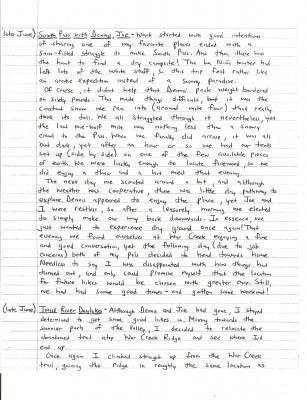 (late June) South Pass with Deano, Joe - What started with good intentions
of sharing one of my favorite places ended with a
snow-filled struggle to make South Pass. And then there was
the hunt to find a dry campsite! The La Niña winter had
left lots of the white stuff, so this trip felt rather like
an arctic expedition instead of a Sunny paradise.
Of course, it didn't help that Deano's pack weight bordered
on sixty pounds. This made things difficult, but it was the
constant snow we ran into (around mile four) that really
took its toll. We all struggled through it nevertheless, yet
the last one-half mile was nothing less than a snowy
crawl to the Pass. When we finally did arrive, it was all
but dark, yet after an hour or so we had our tents
set up (side by side) on one of the few available pieces
of earth. We were lucky enough to locate firewood, so we
did enjoy a and a hot meal that evening.
The next day we scouted around a bit, and although
the weather was cooperative, there was little dry pathway to
explore. Deano appeared to enjoy the place, yet Joe and
I were restless, so after a leisurely morning we elected
to simply make our way back downwards. In essence, we
just wanted to experience dry ground once again! That
evening we found ourselves at War Creek enjoying a fire
and good conversation, yet the following day (due to job
concerns) both of my pals decided to head towards home.
Needless to say I was disappointed with how things had
turned out, and only could promise myself that the location
for future hikes would be chosen with greater care. Still,
we had had some good times - and gotten some workout!
(late June) River Dayhikes - Although Deano and Joe had gone, I stayed
determined to get some good hikes in. Moving towards the
sunnier parts of the valley, I decided to relocate the
abandoned trail atop War Creek Ridge and see where I'd
end up.
Once again I climbed straight up from the War Creek
trail, gaining the ridge in roughly the same location as